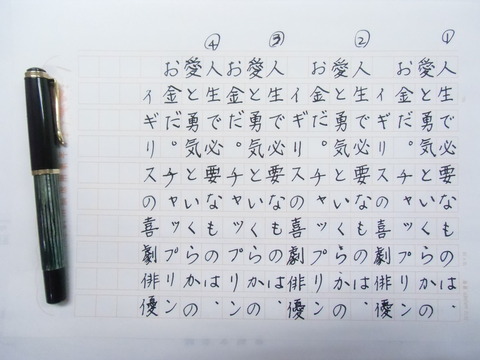 ①
人生で必要なものは、
愛と勇気といくらかの
お金だ。チャップリン
イギリスの喜劇俳優
②
人生で必要なものは、
愛と勇気といくらかの
お金だ。チャップリン
イギリスの喜劇俳優
③
人生で必要なものは、
愛と勇気といくらかの
お金だ。チャップリン
④
人生で必要なものは、
愛と勇気といくらかの
お金だ。チャップリン
イギリスの喜劇俳優